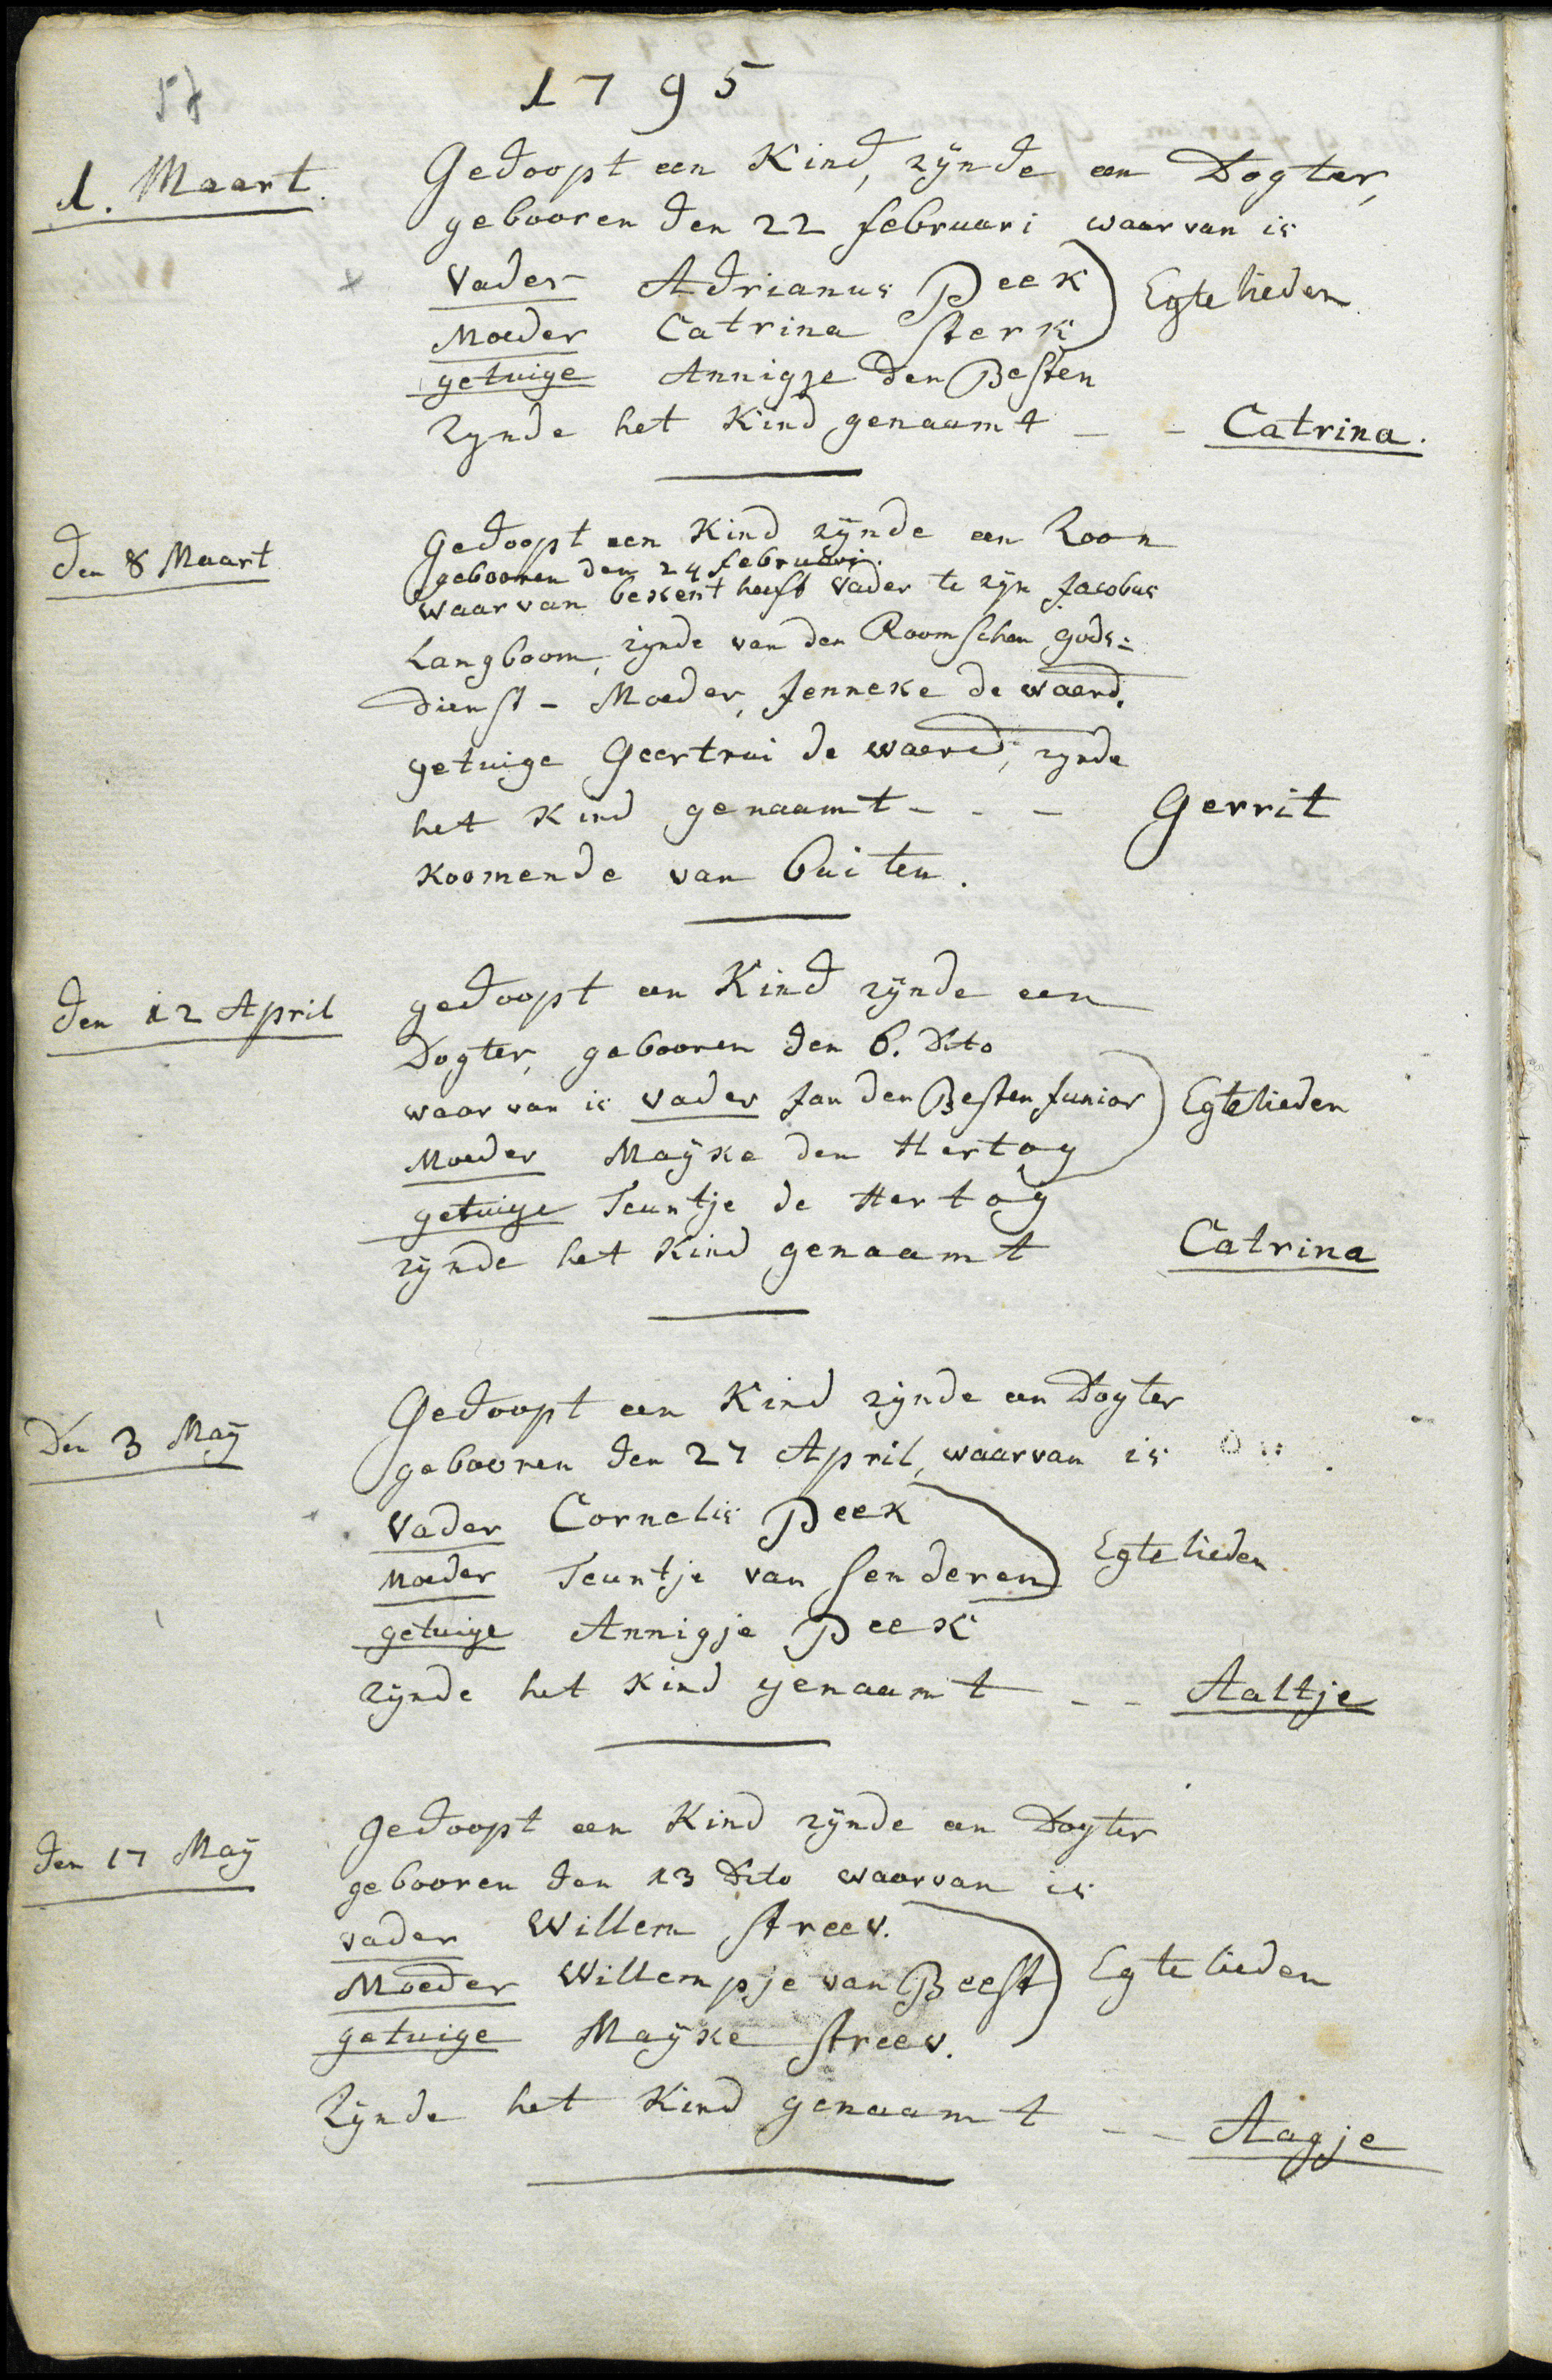 57
1795
1. Maart.
Gedoopt een Kind, zÿnde een Dogter,
gebooren den 22 februari waar van is
Vader Adrianus Peek
Egte lieden
Moeder Catrina Sterk
getuige Annigje den Besten
Zynde het Kind genaamt - - Catrina.
den 8 Maart
Gedoopt een Kind zÿnde een Zoon
gebooren den 24 februari.
waar van bekent heeft Vader te zÿn Jacobus
Langboom, zÿnde van den Roomschen gods=
dienst - Moeder, Jenneke de waerd.
getuige Geertrui de waerd, zynde
het Kind genaamt - - - Gerrit
koomende van buiten.
den 12 April
gedoopt een Kind zÿnde een
Dogter, gebooren den 6. Dito
waar van is vader Jan den Besten Junior
Egtelieden
Moeder Maÿke den Hertog
getuige Teuntje de Hertog
zÿnde het Kind genaamt Catrina
Den 3 Maÿ
Gedoopt een Kind zÿnde een Dogter
gebooren den 27 April, waarvan is
Vader Cornelis Peek
Egte lieden
Moeder Teuntje van Senderen
getuige Annigje Peek
zÿnde het kind genaamt - - Aaltje
den 17 Maÿ
gedoopt een Kind zÿnde een Dogter
gebooren den 13 Dito waarvan is
vader Willem Streev.
Moeder Willempje van Beest
Egte lieden
getuige Maÿke Streev.
Zÿnde het Kind genaamt - - Aagje